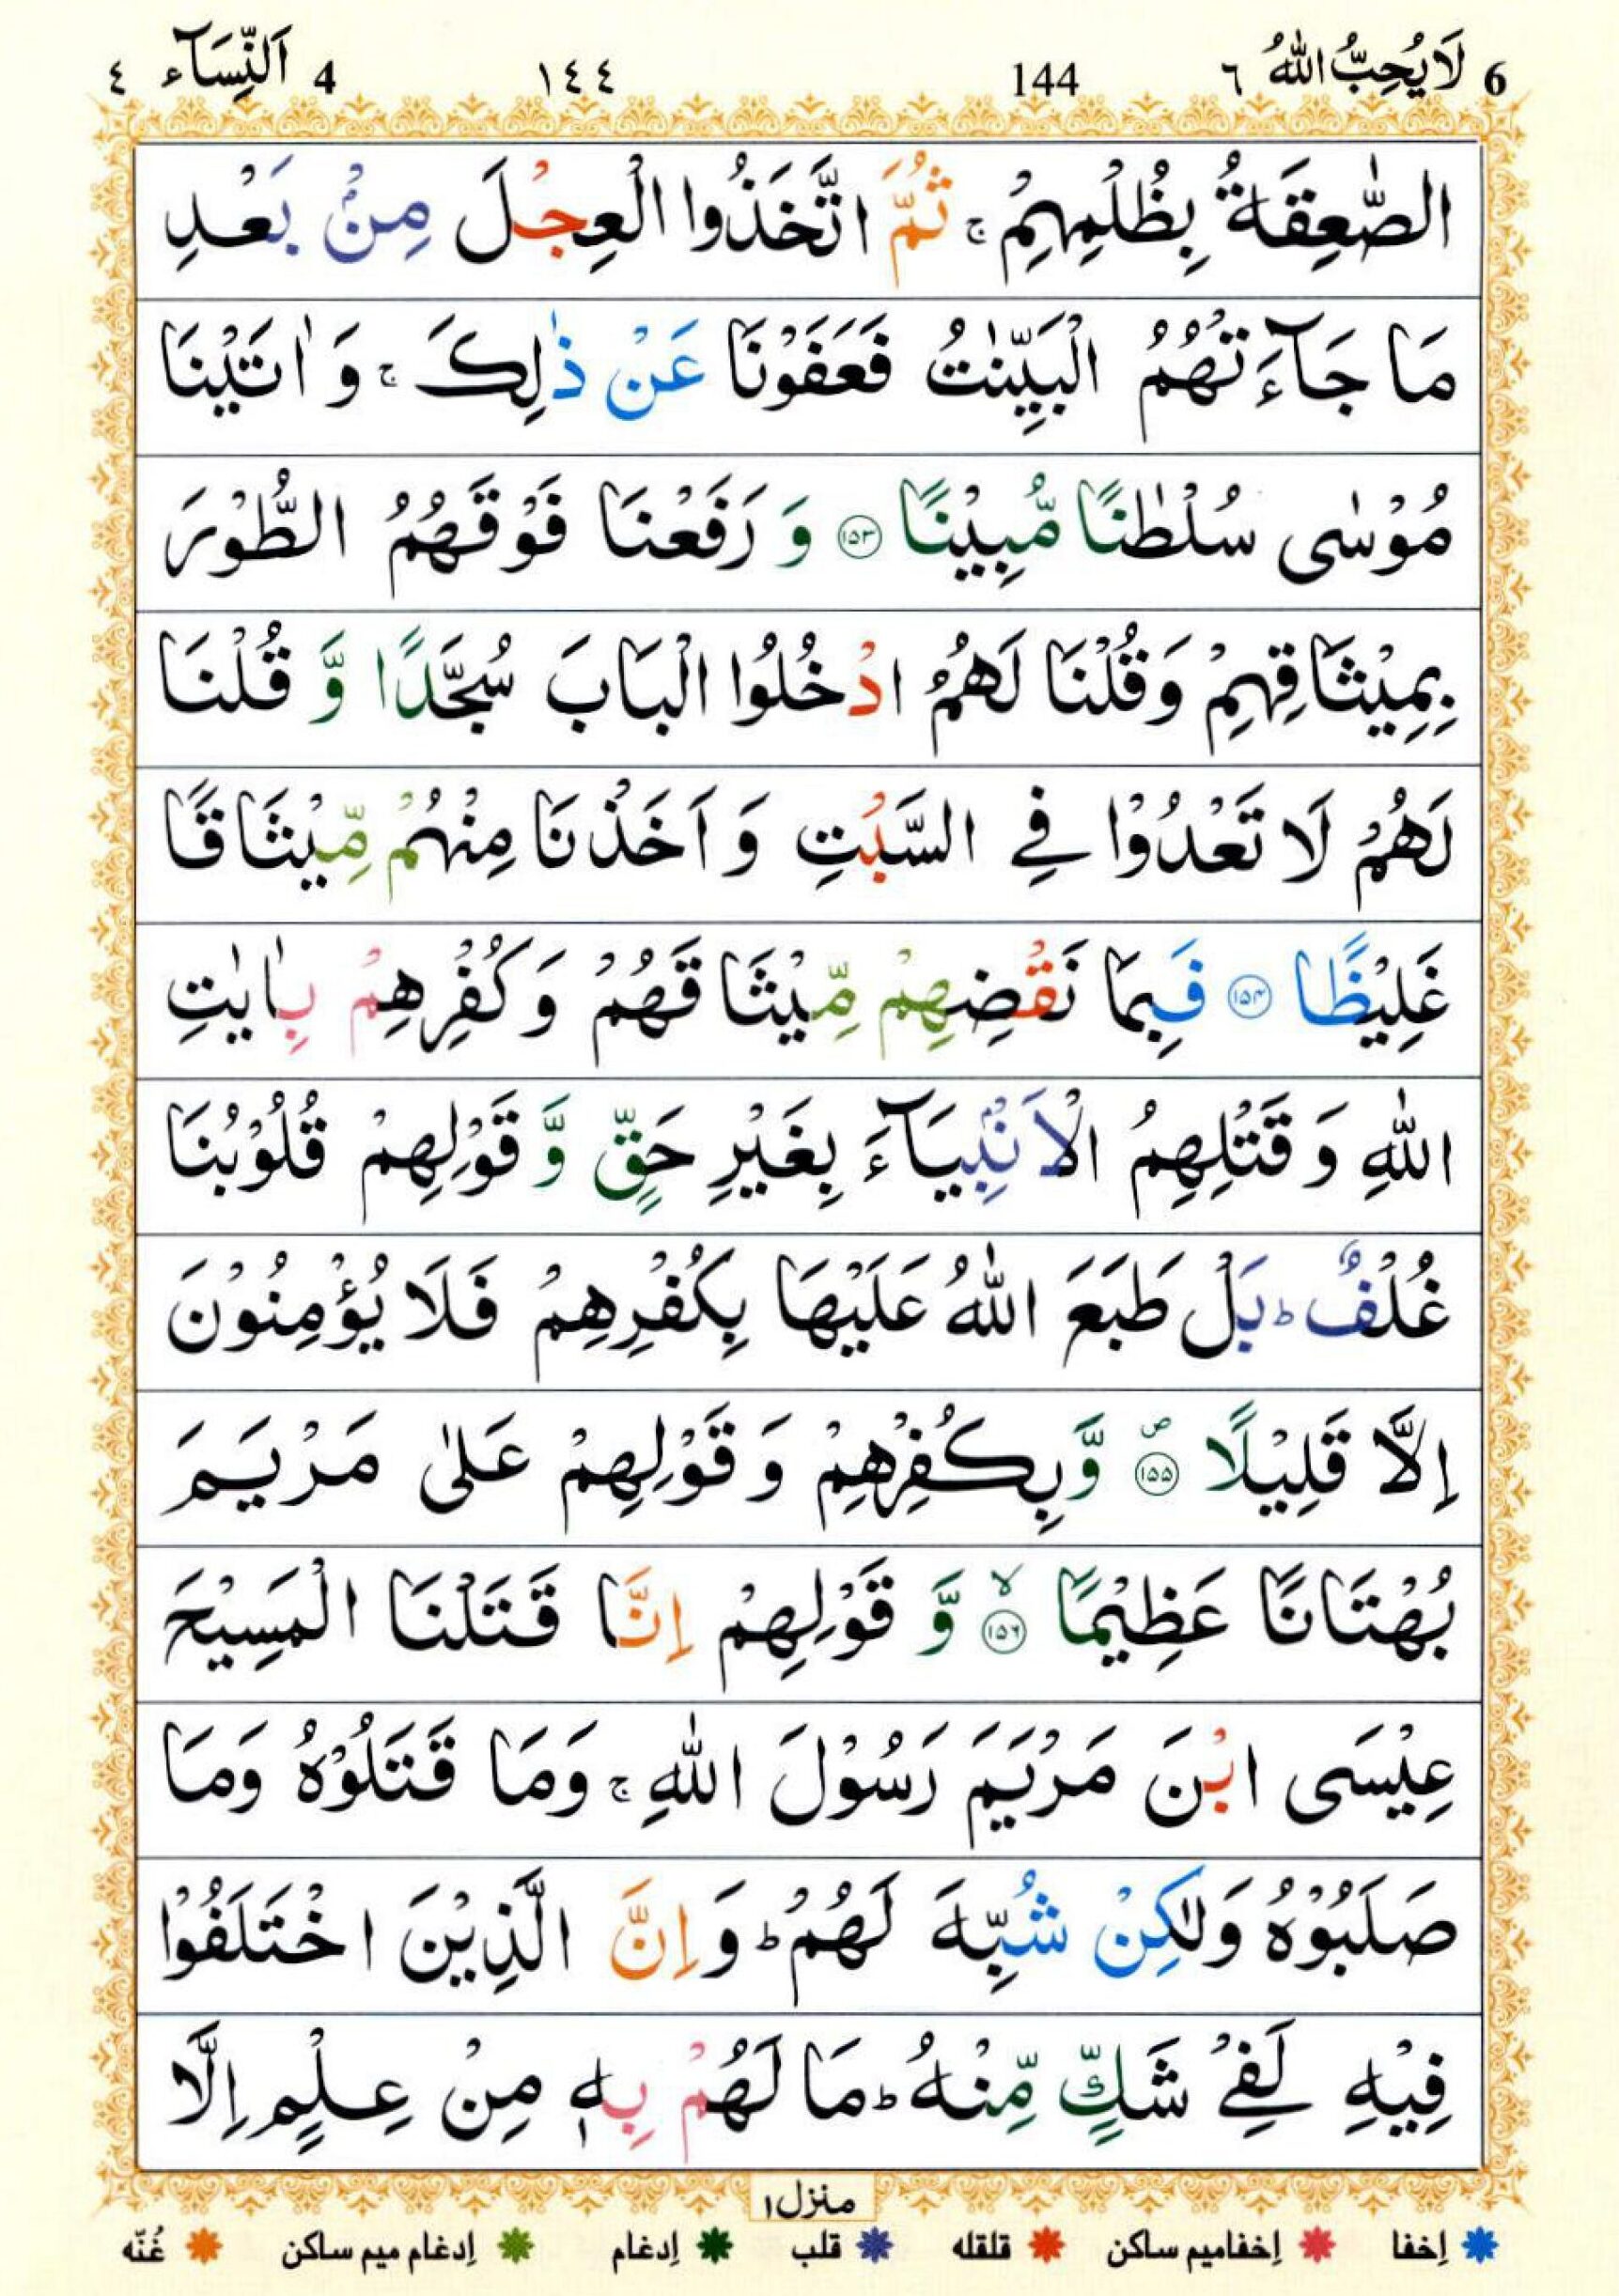 6 لَا يُحِبُّ اللّٰهُ ٦ 144 ١٤٤ 4 اَلنِّسَآء ٤
الصّٰعِقَةُ بِظُلْمِهِمْ ۚ ثُمَّ اتَّخَذُوا الْعِجْلَ مِنْۢ بَعْدِ
مَا جَآءَتْهُمُ الْبَيِّنٰتُ فَعَفَوْنَا عَنْ ذٰلِكَ ۚ وَ اٰتَيْنَا
مُوْسٰى سُلْطٰنًا مُّبِيْنًا ﴿۱۵۳﴾ وَ رَفَعْنَا فَوْقَهُمُ الطُّوْرَ
بِمِيْثَاقِهِمْ وَقُلْنَا لَهُمُ ادْخُلُوا الْبَابَ سُجَّدًا وَّ قُلْنَا
لَهُمْ لَا تَعْدُوْا فِي السَّبْتِ وَ اَخَذْنَا مِنْهُمْ مِّيْثَاقًا
غَلِيْظًا ﴿۱۵۴﴾ فَبِمَا نَقْضِهِمْ مِّيْثَاقَهُمْ وَ كُفْرِهِمْ بِاٰيٰتِ
اللّٰهِ وَ قَتْلِهِمُ الْاَنْۢبِيَآءَ بِغَيْرِ حَقٍّ وَّ قَوْلِهِمْ قُلُوْبُنَا
غُلْفٌ ؕ بَلْ طَبَعَ اللّٰهُ عَلَيْهَا بِكُفْرِهِمْ فَلَا يُؤْمِنُوْنَ
اِلَّا قَلِيْلًا ﴿۱۵۵﴾ۖ وَّ بِكُفْرِهِمْ وَ قَوْلِهِمْ عَلٰى مَرْيَمَ
بُهْتَانًا عَظِيْمًا ﴿۱۵۶﴾ۙ وَّ قَوْلِهِمْ اِنَّا قَتَلْنَا الْمَسِيْحَ
عِيْسَى ابْنَ مَرْيَمَ رَسُوْلَ اللّٰهِ ۚ وَمَا قَتَلُوْهُ وَمَا
صَلَبُوْهُ وَلٰكِنْ شُبِّهَ لَهُمْ ؕ وَ اِنَّ الَّذِيْنَ اخْتَلَفُوْا
فِيْهِ لَفِيْ شَكٍّ مِّنْهُ ؕ مَا لَهُمْ بِهٖ مِنْ عِلْمٍ اِلَّا
منزل ۱
اِخفا اِخفامیم ساکن قلقله قلب اِدغام اِدغام میم ساکن غُنّه